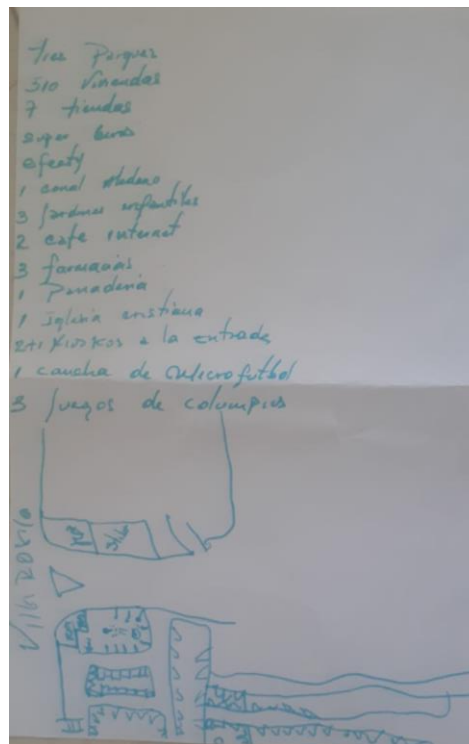 Tres Parques
510 Viviendas
7 tiendas
super
efecty
1 canal
3 Jardines infantiles
2 cafe internet
3 farmacias
1 Panaderia
1 Iglesia cristiana
2+1 KiosKos a la entrada
1 cancha de microfutbol
3 Juegos de columpios
Villa Rocio